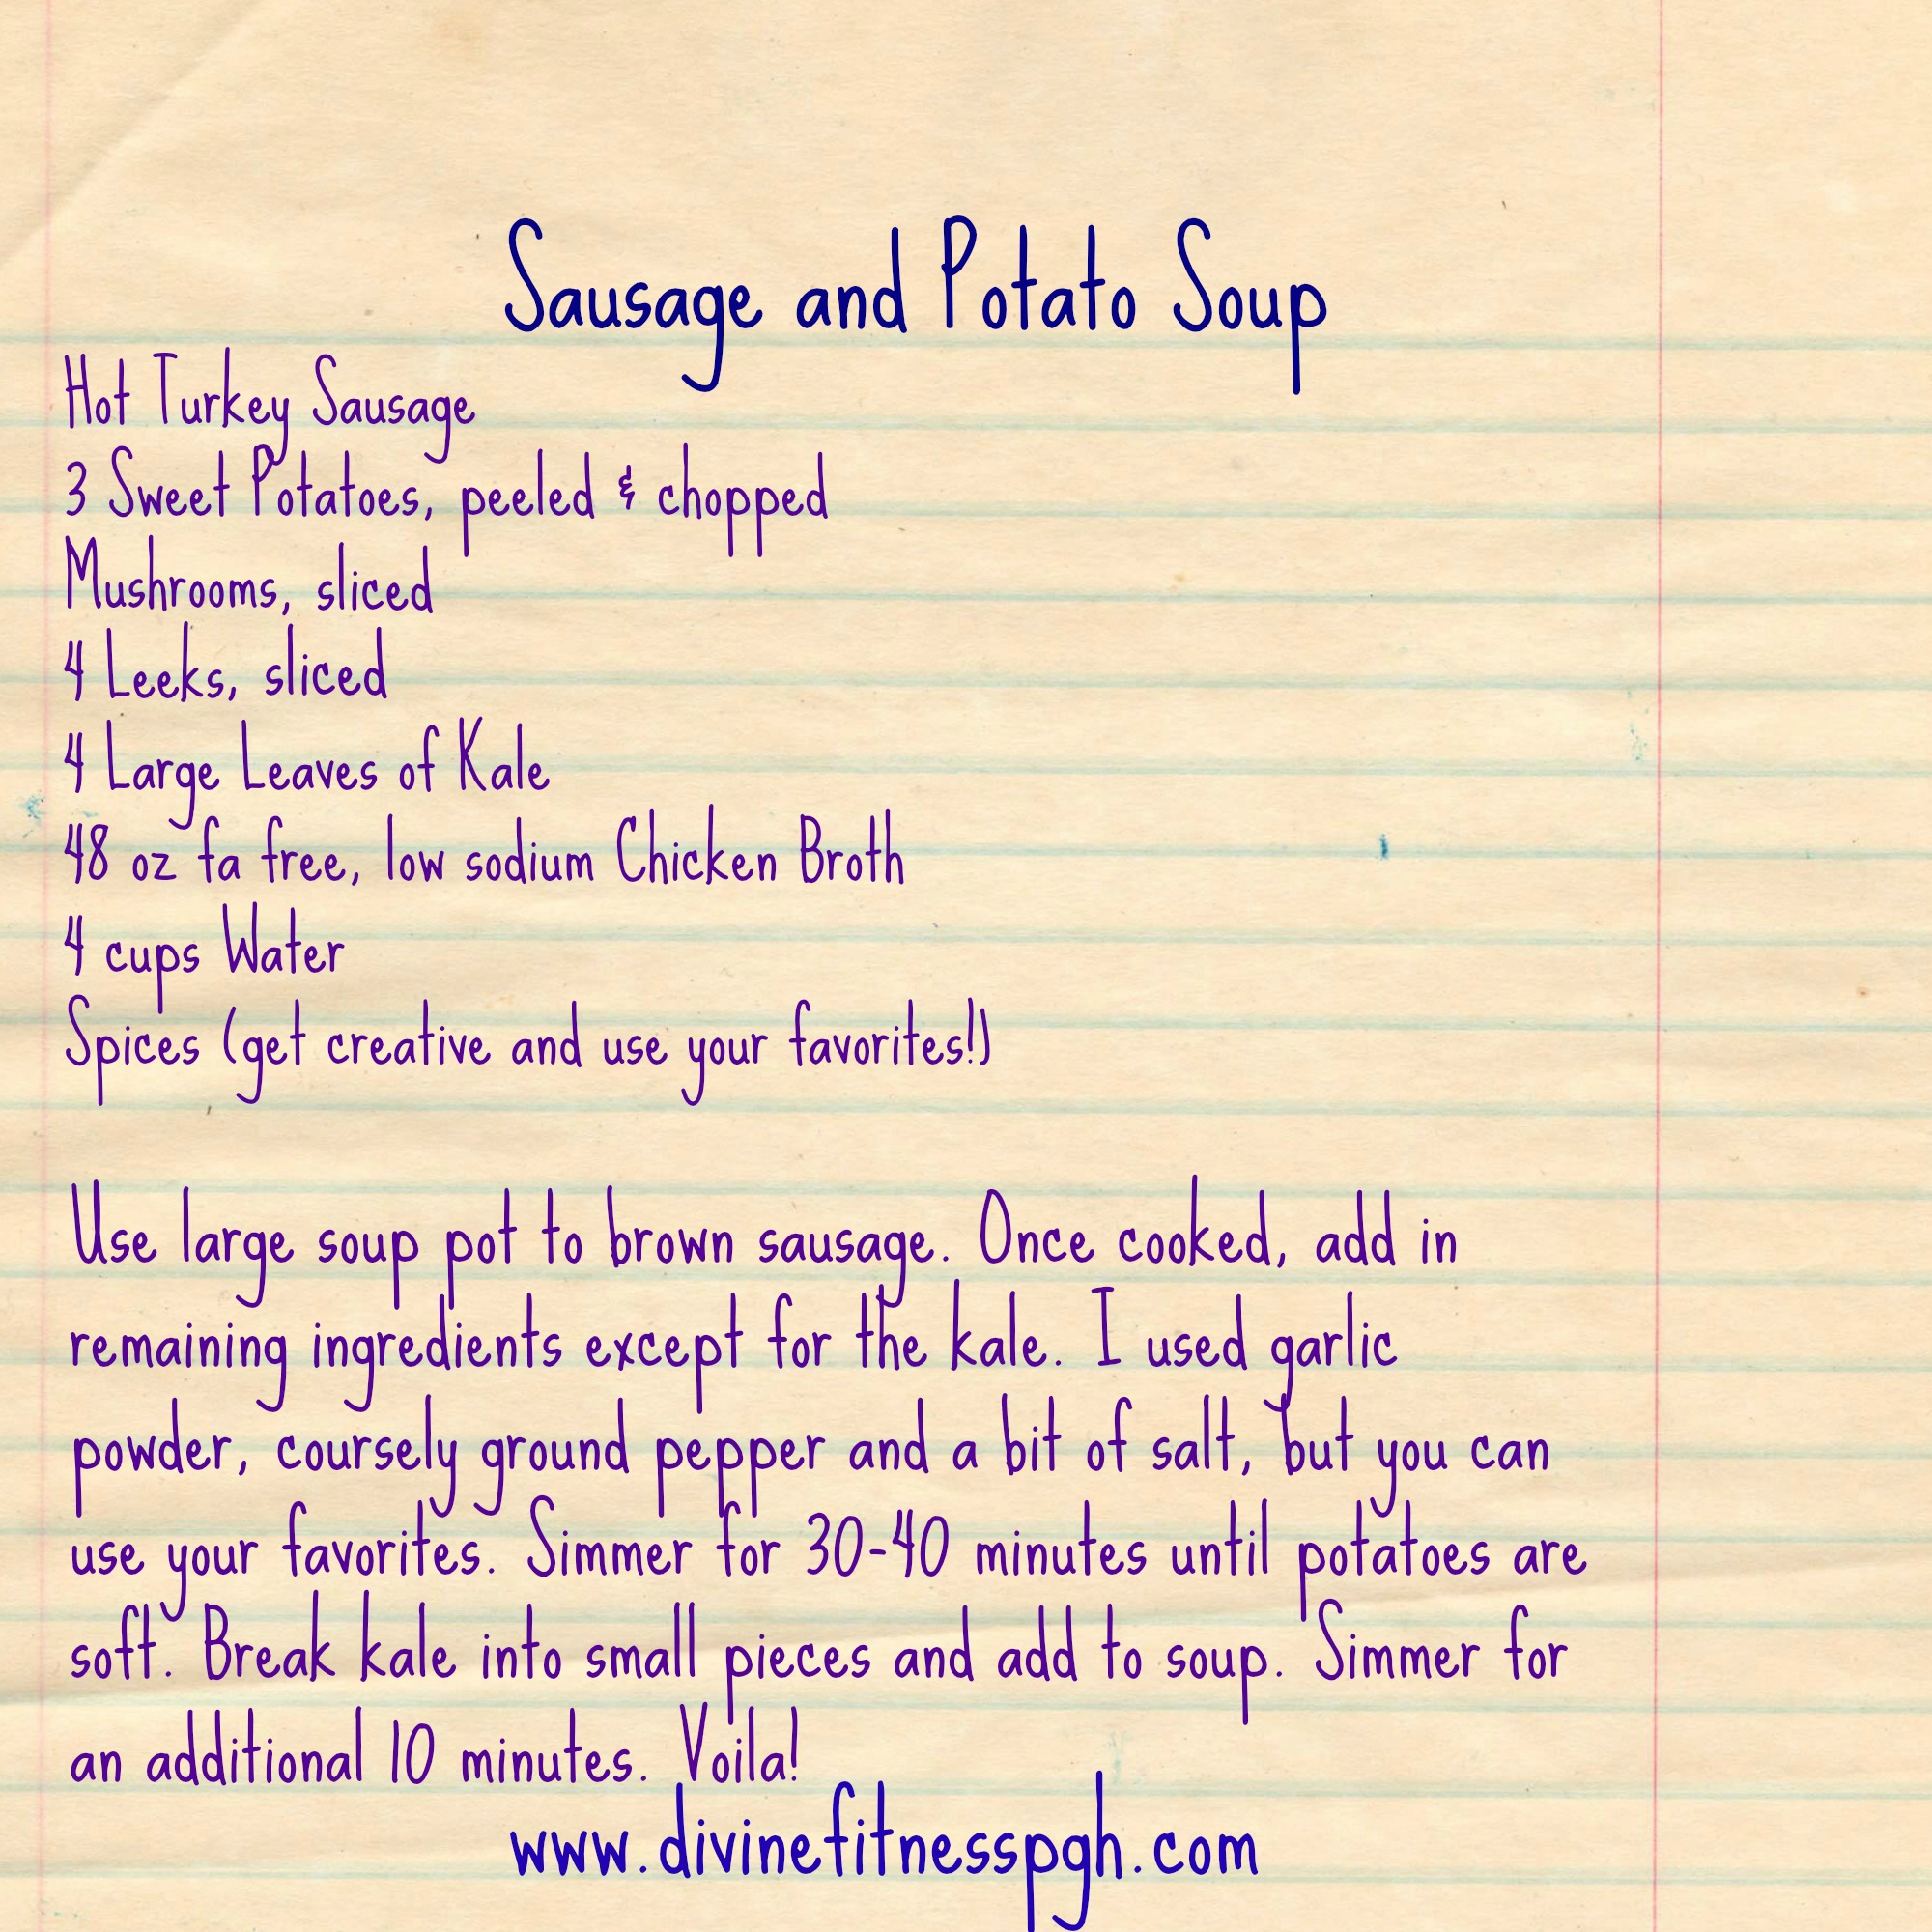 Sausage and Potato Soup
Hot Turkey Sausage
3 Sweet Potatoes, peeled & chopped
Mushrooms, sliced
4 Leeks, sliced
4 Large Leaves of Kale
48 oz fa free, low sodium Chicken Broth
4 cups Water
Spices (get creative and use your favorites!)
Use large soup pot to brown sausage. Once cooked, add in
remaining ingredients except for the kale. I used garlic
powder, coursely ground pepper and a bit of salt, but you can
use your favorites. Simmer for 30-40 minutes until potatoes are
soft. Break kale into small pieces and add to soup. Simmer for
an additional 10 minutes. Voila!
www.divinefitnesspgh.com